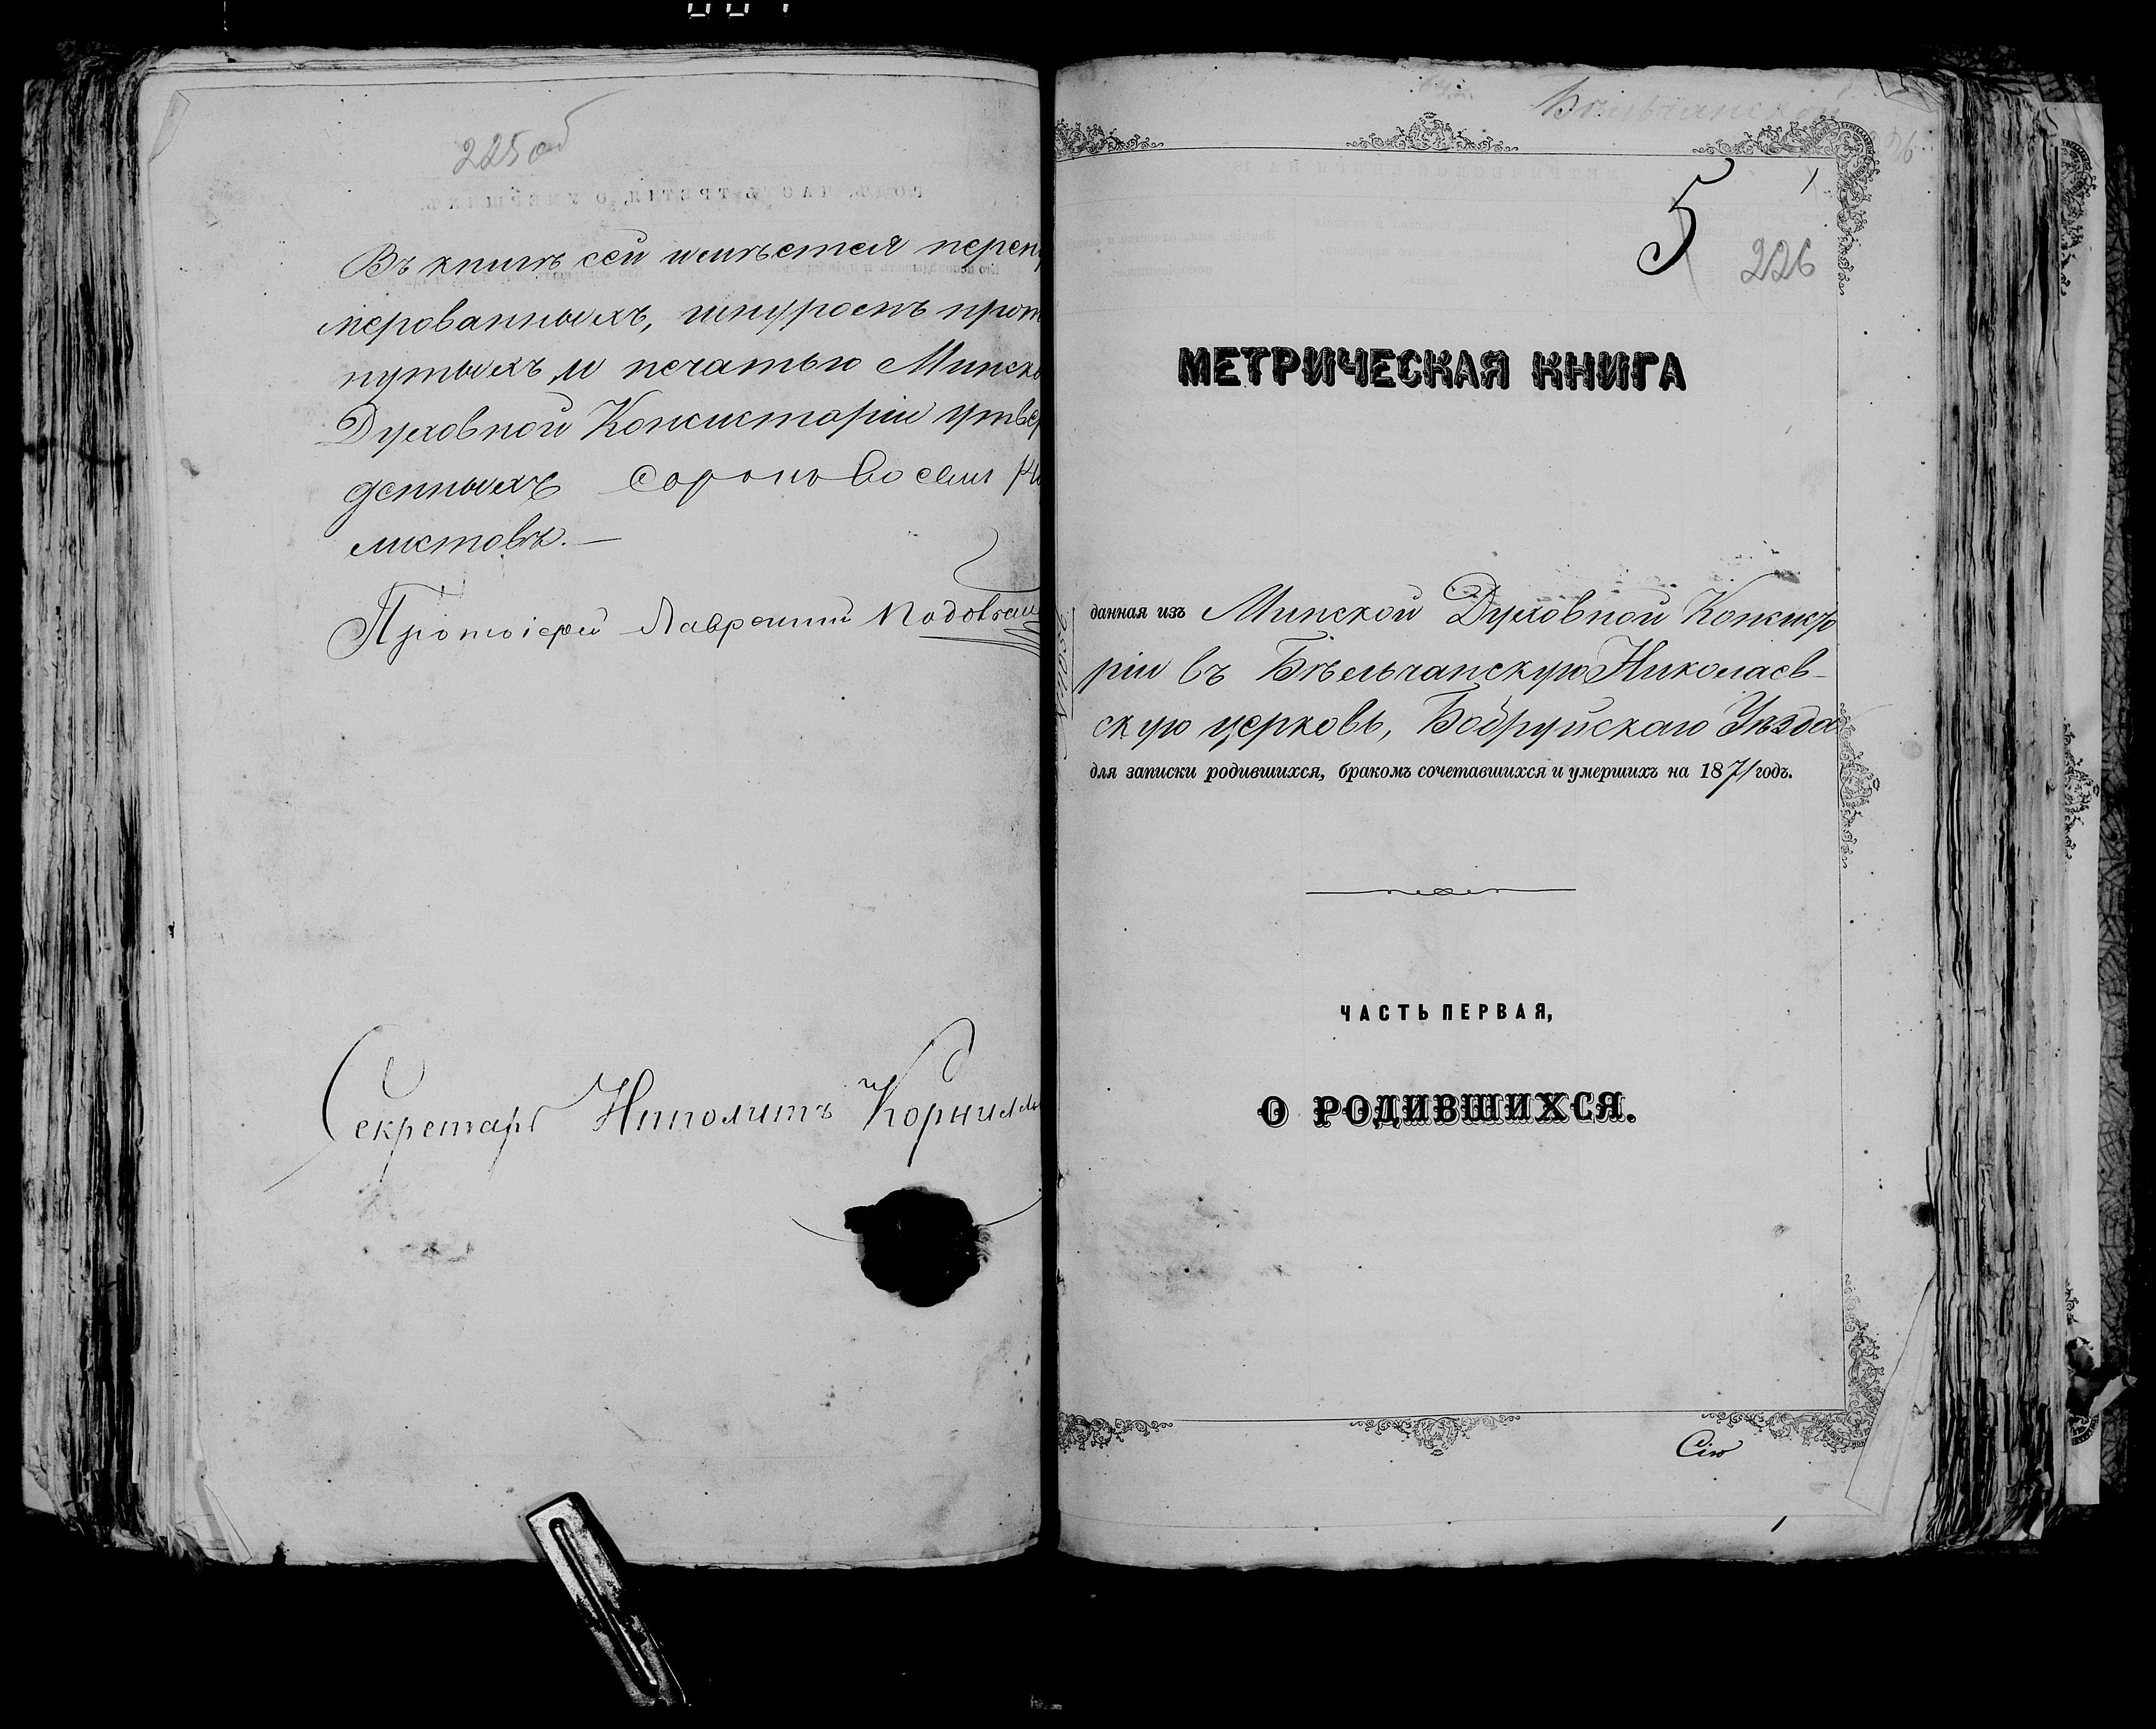 225 об
Въ книгѣ сей имѣется перену
мерованныхъ, шнуромъ прот
нутыхъ и печатью Минско
Духовной Консисторіи утвер
денныхъ сорокъ восем
листовъ.—
Протоіерей Лаврентій
Секретарь Иполитъ Корнилл
Бѣльчанской
5
226
МЕТРИЧЕСКАЯ КНИГА
данная изъ Минской Духовной Консисто
ріи въ Бѣльчанскую Николаев-
скую церковь, Бобруйскаго Уѣзда
для записки родившихся, бракомъ сочетавшихся и умершихъ на 1871 годъ.
ЧАСТЬ ПЕРВАЯ,
О РОДИВШИХСЯ.
Сію